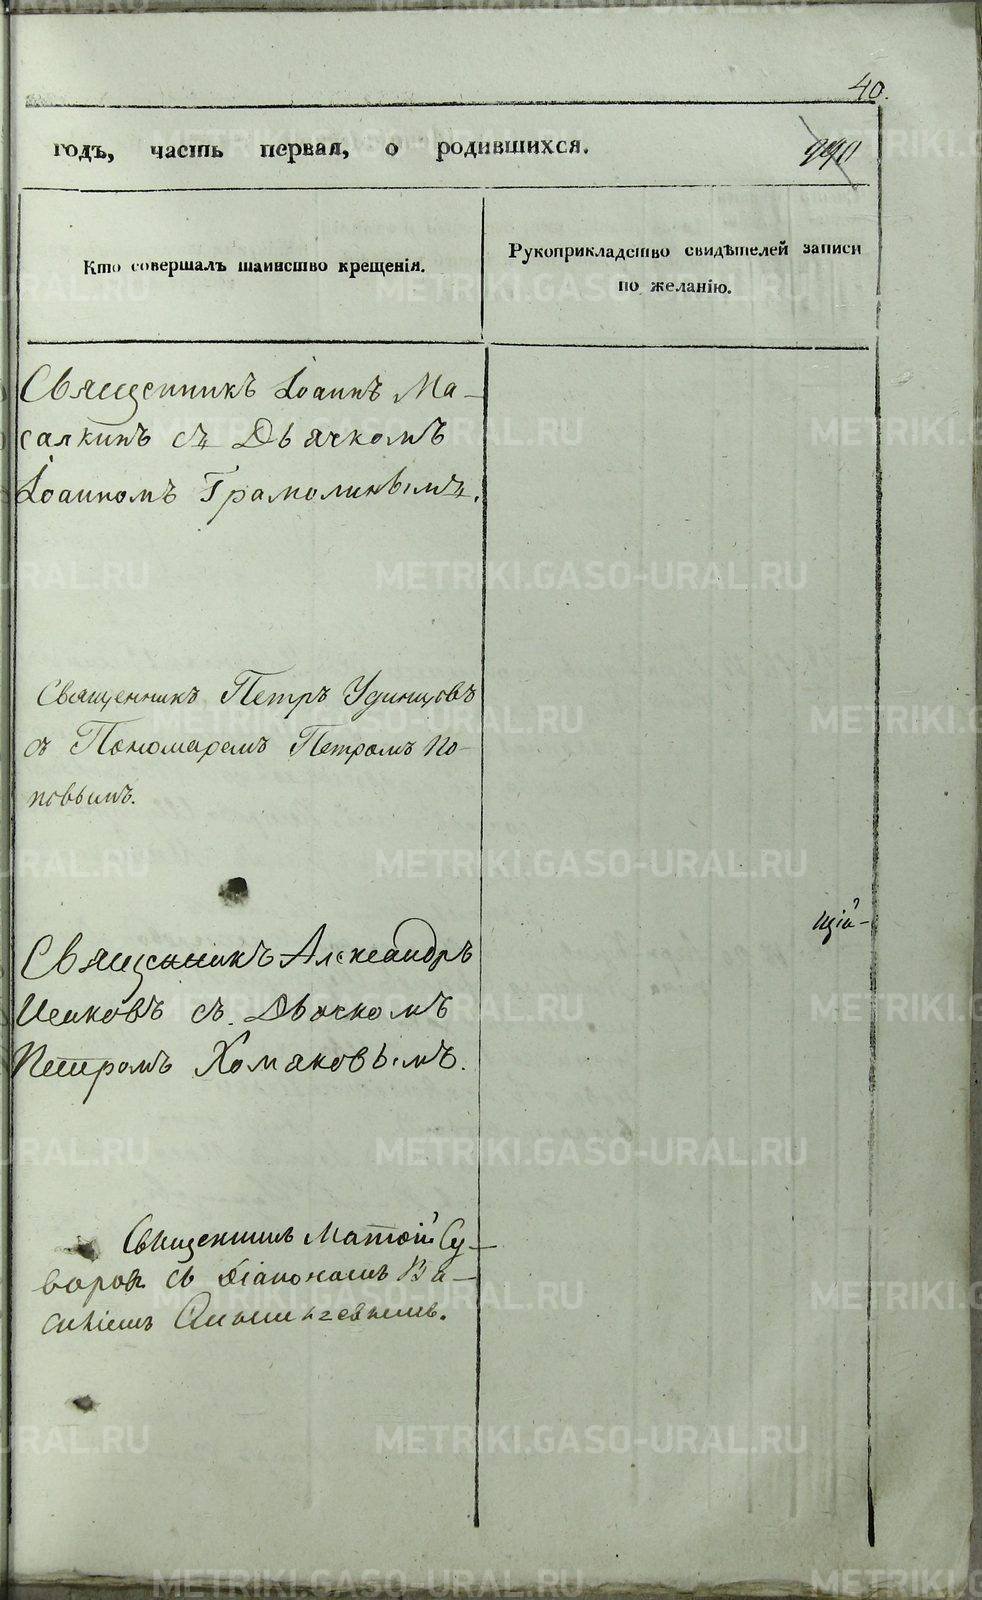 40.
годъ, часть первая, о родившихся.
Кто совершалъ таинство крещенія.
Рукоприкладство свидѣтелей записи
по желанію.
Священникъ Іоаннъ Ма-
салкинъ съ Дьячкомъ
Іоанномъ Грамолинымъ.
Священникъ Петръ Удинцовъ
съ Пономаремъ Петромъ По-
повымъ.
щій-
Священникъ Александръ
съ Дьячкомъ
Петромъ Хомяковымъ.
Священникъ Матѳій Су-
воровъ съ Діакономъ Ва-
силіемъ
METRIKI.GASO-URAL.RU